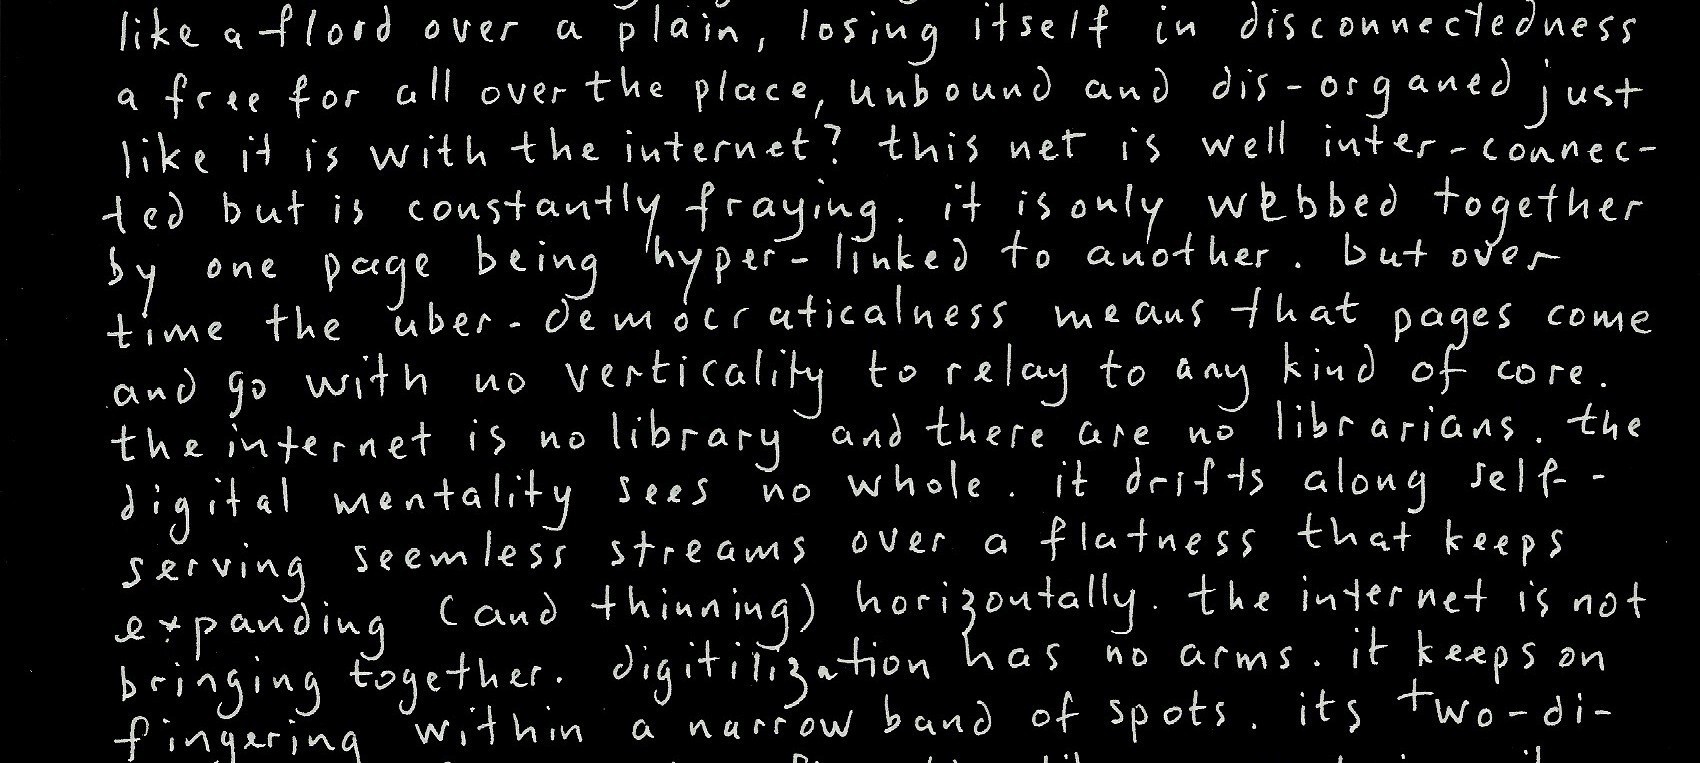 like a flood over a plain, losing itself in disconnectedness
a free for all over the place, unbound and dis-organed just
like it is with the internet? this net is well inter-connec-
ted but is constantly fraying. it is only webbed together
by one page being hyper-linked to another. but over
time the uber-democraticalness means that pages come
and go with no verticality to relay to any kind of core.
the internet is no library and there are no librarians. the
digital mentality sees no whole. it drifts along self-
serving seemless streams over a flatness that keeps
expanding (and thinning) horizontally. the internet is not
bringing together. digitilization has no arms. it keeps on
fingering within a narrow band of spots. its two-di-